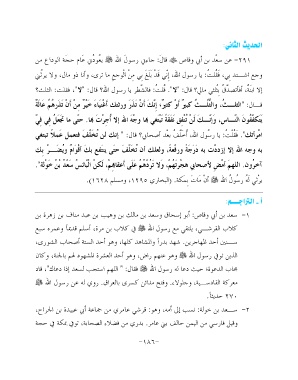 الحديث الثاني
٢٩١- عن سعد بن أبي وقاص ﷺ قال: جاءني رسول الله ﷺ يعُودُني عام حجة الوداع من
وجع اشتد بي، فقُلتُ: يا رسول الله، إني قد بلغ بي من الوجع ما ترى، وأنا ذو مال، ولا يرثُني
إلا ابنةٌ، أفأتصدَّقُ بثُلثي مالي؟ قال: "لا". قُلتُ: فالشَّطر يا رسول الله؟ قال: "لا"، قلتُ: الثلث؟
قال: "الثلثُ، والثُّلُثُ كبيرٌ أو كثيرٌ، إنَّك أن تذرَ ورثتك أغنياءَ خيرٌ من أنْ تذرَهُم عالةً
يتكفَّفُون النَّاس، وإنـك لن تُنفِق نفقةً تبتغي بِها وجه الله إلا أُجرت بِها، حتى ما تجعلُ في فِي
امرأتك". فقُلتُ: يا رسول الله، أُخلَّفُ بعد أصحابي؟ قال: "إنك لن تُخلَّف فتعمل عملًا تبتغي
به وجه الله إلا ازددْتَ به درجةً ورفعةً، ولعلَّك أن تُخلَّف حتى ينتفع بك أقوامٌ ويُضرَّ بك
آخرون. اللهم أَمضِ لأصحابي هجرتَهُم، ولا تردَّهُم على أعقابِهم، لكنِ البائسُ سعْدُ بْنُ خولَة".
يرثي له رسُولُ الله ﷺ أنْ مات بمكة. (البخاري ١٢٩٥، ومسلم ١٦٢٨).
أ ـ التراجـم:
١- سعد بن أبي وقاص: أبو إسحاق وسعد بن مالك بن وهيب بن عبد مناف بن زهرة بن
كلاب القرشي، يلتقي مع رسول الله ﷺ في كلاب بن مرة، أسلم قديماً وعمره سبع
الذين توفي رسول الله ﷺ وهو عنهم راض، وهو أحد العشرة المشهود لهم بالجنة، وكان
مجاب الدعوة؛ حيث دعا له رسول الله ﷺ فقال: "اللهم استجب لسعد إذا دعاك". قاد
معركة القادسية، وجلولاء، وفتح مدائن كسرى بالعراق. روي له عن رسول الله ﷺ
٢٧٠ حديثاً.
٢- سعد بن خولة: نسب إلى أمه، وهو: قرشي عامري من جماعة أبي عبيدة بن الجراح،
وقيل فارسي من اليمن حالف بني عامر. بدري من فضلاء الصحابة، توفي بمكة في حجة
-١٨٦-